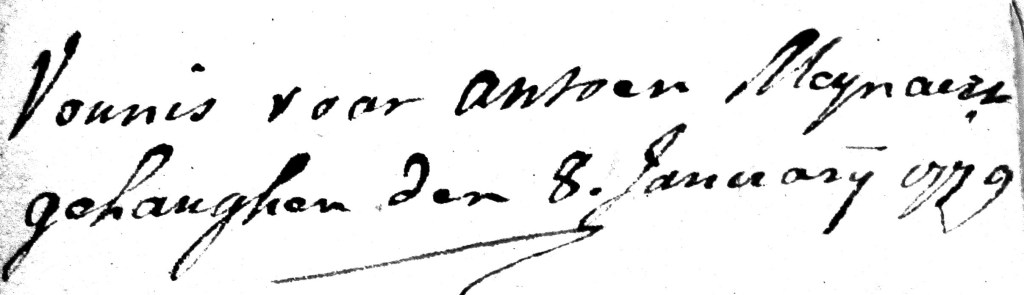 Vounis voor antoen Meynaert
gehanghen den 8. Januarÿ 1779